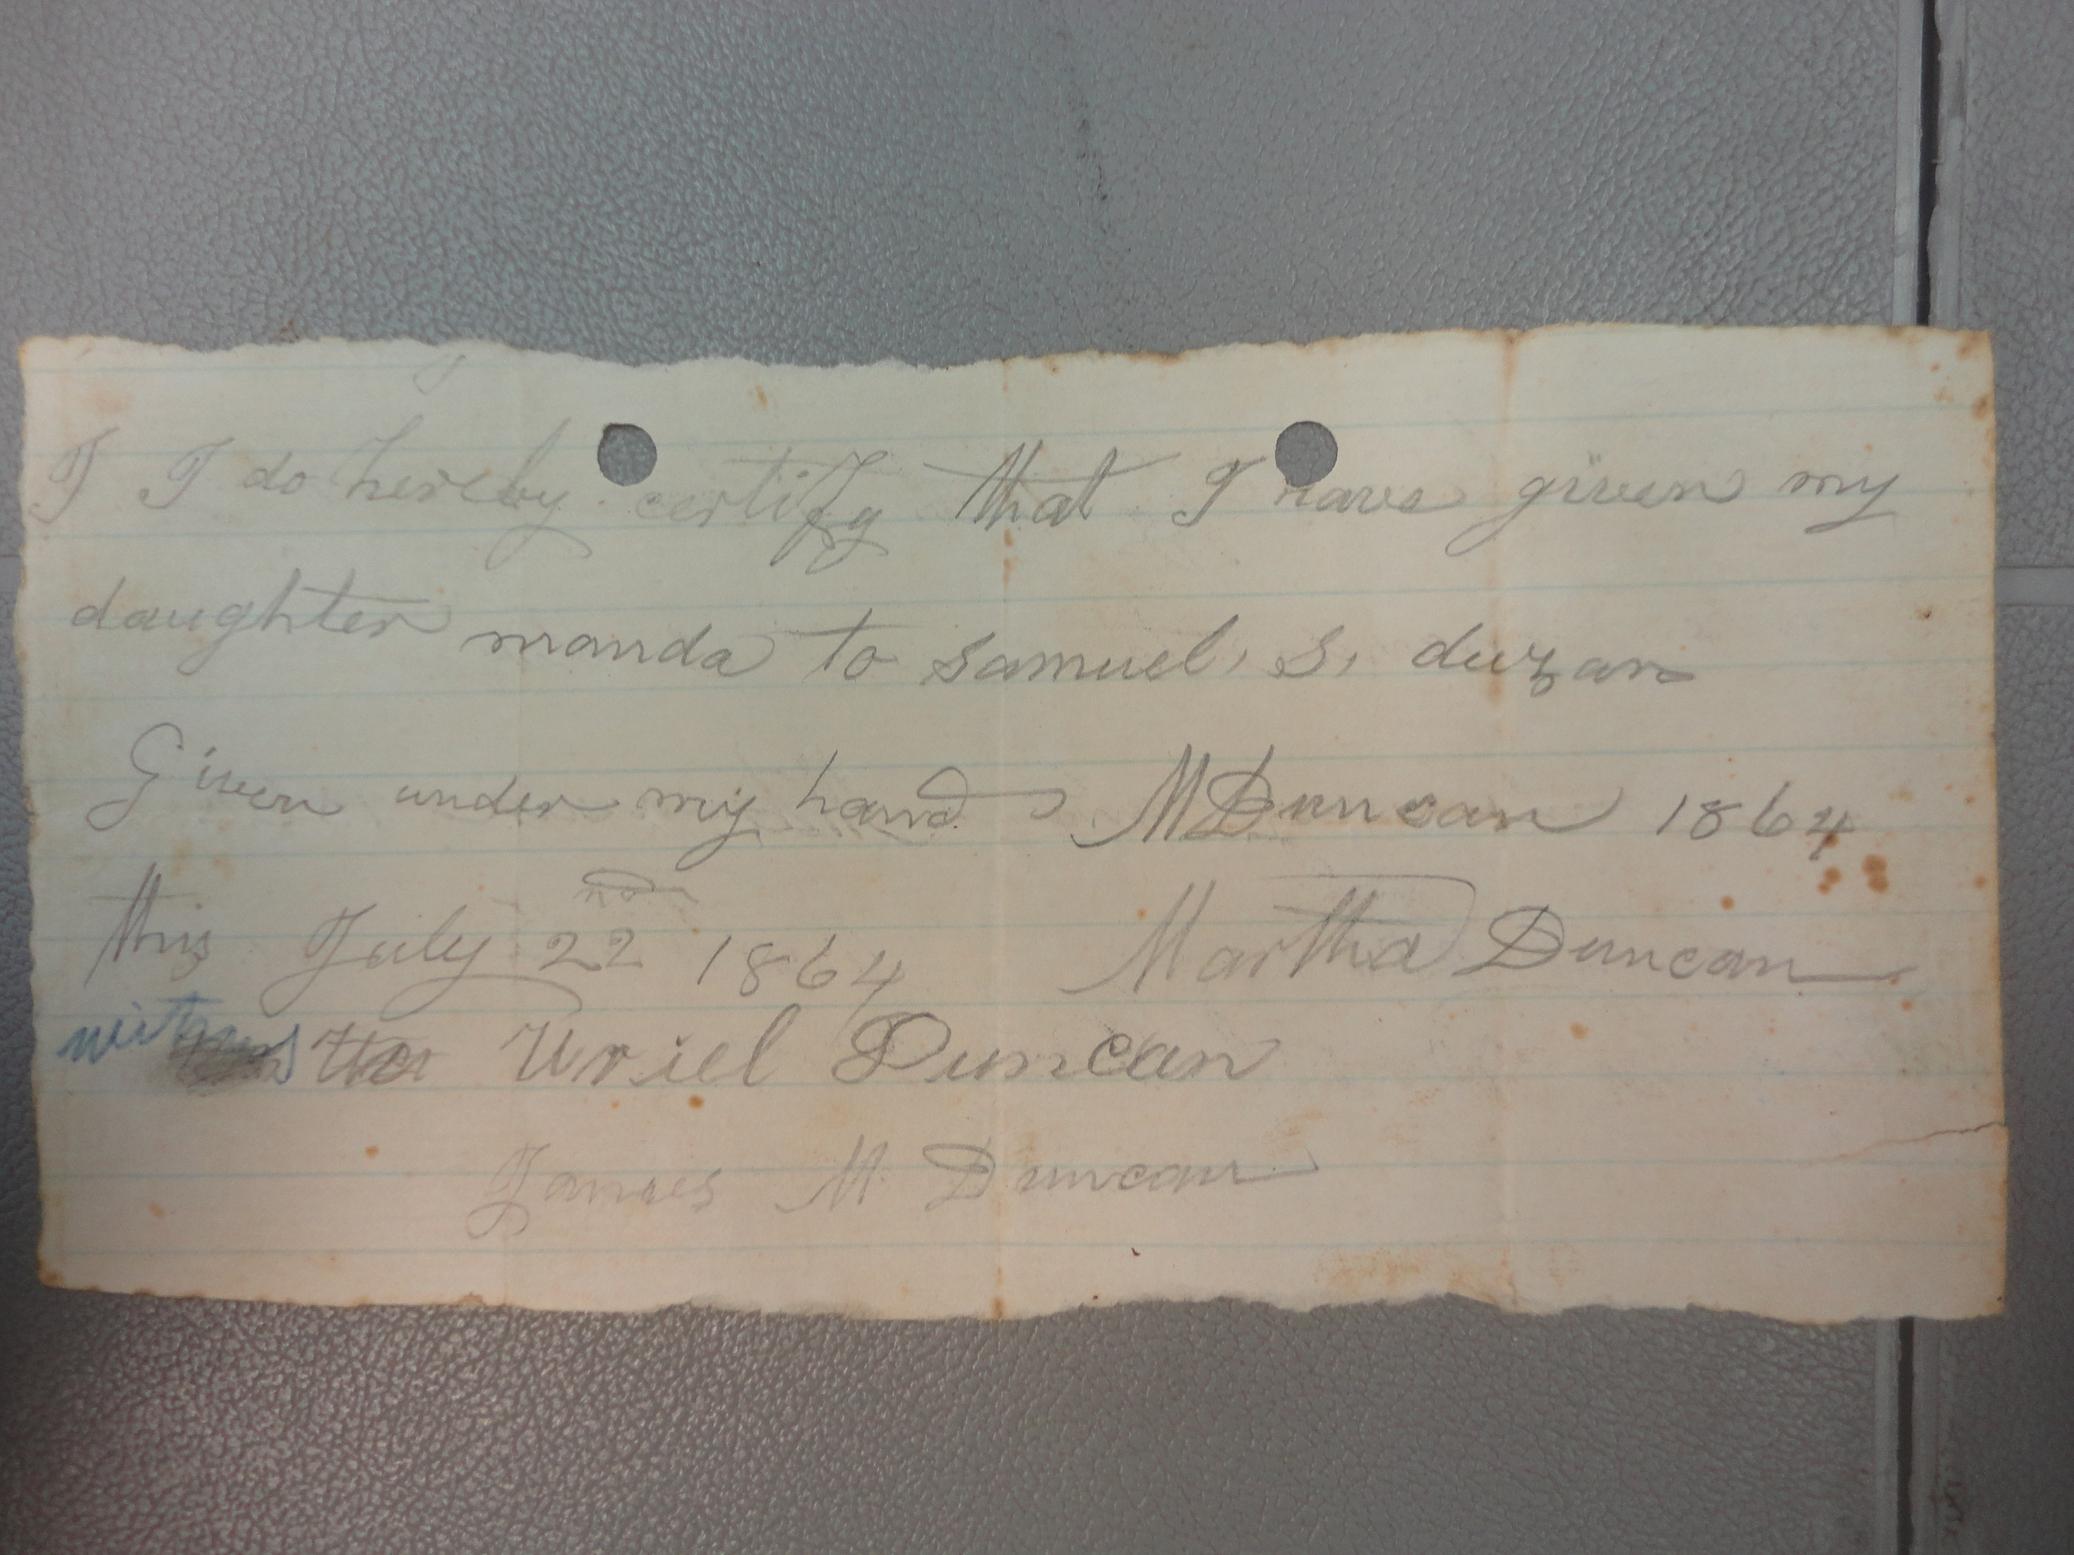 I I do hereby certify that I have given my
daughter manda to samuel, S, duzan
Given under my hand M Duncan 1864
this July 22nd 1864 Martha Duncan
witness Uriel Duncan
James M Duncan